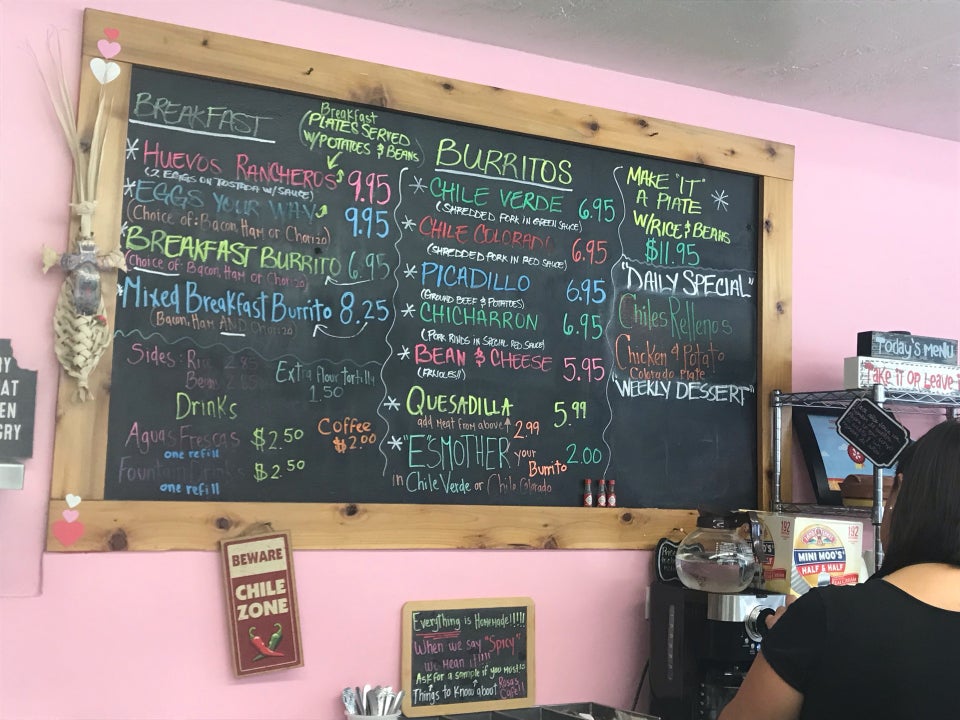 BREAKFAST
Breakfast
PLATES SERVED
W/POTATOES & BEANS
* HUEVOS RANCHEROS 9.95
(2 EGGS ON TOSTADA W/SAUCE)
* EGGS YOUR WAY 9.95
(Choice of: Bacon, Ham or Chorizo)
BREAKFAST BURRITO 6.95
(Choice of: Bacon, Ham or Chorizo)
* Mixed Breakfast Burrito 8.25
(Bacon, Ham AND Chorizo)
Sides: Rice
Beans
Extra flour tortilla
1.50
Drinks
Aguas Frescas $2.50
one refill
Fountain Drinks $2.50
one refill
Coffee
$2.00
BURRITOS
* CHILE VERDE 6.95
(SHREDDED PORK IN GREEN SAUCE)
* CHILE COLORADO 6.95
(SHREDDED PORK IN RED SAUCE)
* PICADILLO 6.95
(GROUND BEEF & POTATOES)
* CHICHARRON 6.95
(PORK RINDS IN SPECIAL RED SAUCE)
* BEAN & CHEESE 5.95
(FRIJOLES!!)
* QUESADILLA 5.99
add meat from above 2.99
* "E"SMOTHER your Burrito 2.00
in Chile Verde or Chile Colorado
MAKE "IT" *
A PLATE
W/RICE & BEANS
$11.95
"DAILY SPECIAL"
Chiles Rellenos
Chicken & Potato
Colorado Plate
"WEEKLY DESSERT"
BEWARE
CHILE
ZONE
Everything is Homemade!!!!!
When we say "Spicy"
we mean it!!!!
Ask for a sample if you must!!
Things to know about Rosa's Cafe!!
Today's MENU
Take it or Leave it
192
MINI MOO'S
HALF & HALF
192